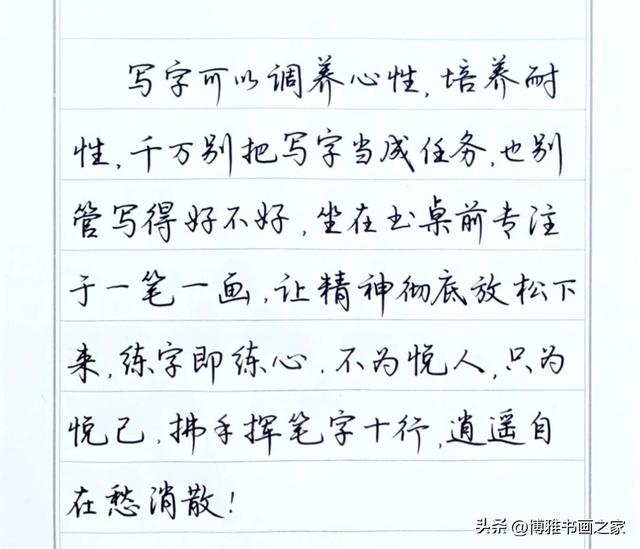 写字可以调养心性,培养耐
性,千万别把写字当成任务,也别
管写得好不好,坐在书桌前专注
于一笔一画,让精神彻底放松下
来,练字即练心,不为悦人,只为
悦己,拂手挥笔字十行,逍遥自
在愁消散!
头条 @博雅书画之家